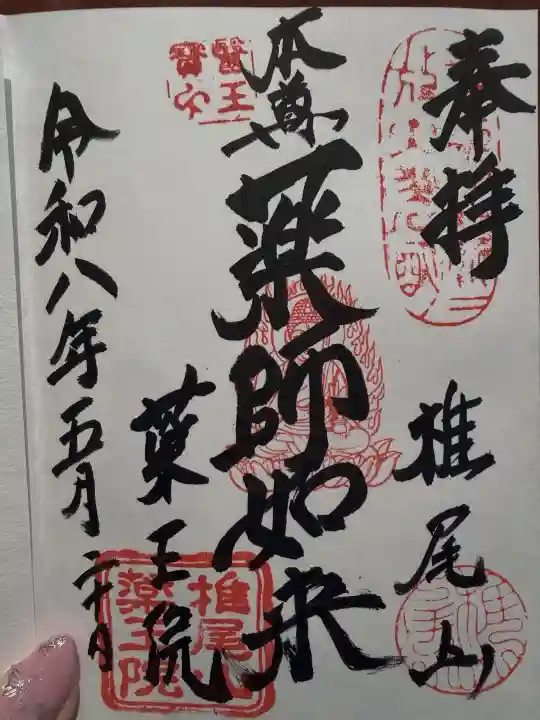 奉拝
椎尾山
本尊
薬師如来
薬王院
令和八年五月二十日
醫王寳印
椎尾山
薬王院